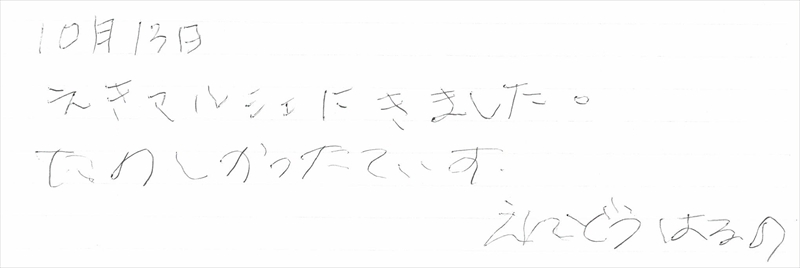 10月13日
えきマルシェにきました。
たのしかったでいす.
えんどうはるの